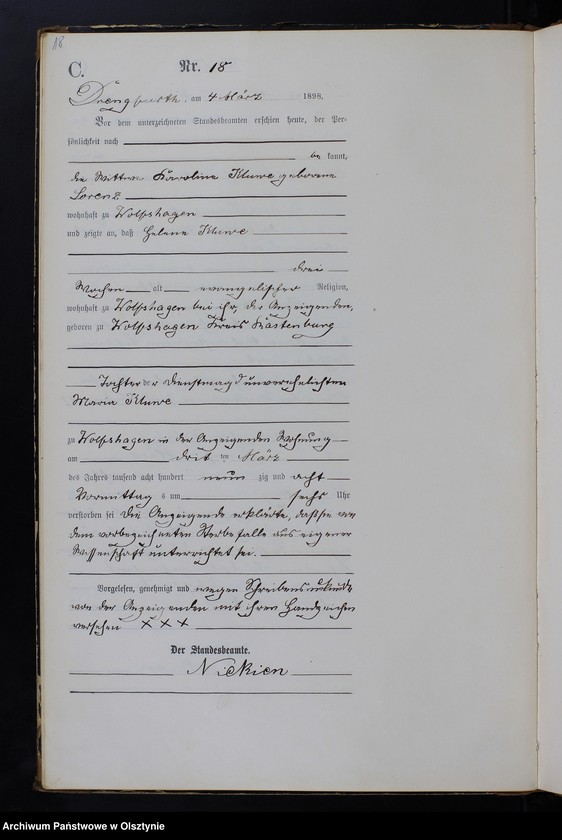 18
C.
Nr. 18
Drengfurth, am 4 März 1898.
Vor dem unterzeichneten Standesbeamten erschien heute, der Per-
sönlichkeit nach
be kannt,
die Wittwe Karoline Kluwe geborene
Lorenz
wohnhaft zu Wolfshagen
und zeigte an, daß Helene Kluwe
drei
Wochen alt evangelischer Religion,
wohnhaft zu Wolfshagen bei ihr, der Anzeigenden,
geboren zu Wolfshagen Kreis Rastenburg
Tochter der Dienstmagd unverehelichten
Maria Kluwe
zu Wolfshagen in der Anzeigenden Wohnung
am drit ten März
des Jahres tausend acht hundert neun zig und acht
Vormittag s um sechs Uhr
verstorben sei Die Anzeigende erklärte, daß sie von
dem vorbezeichneten Sterbefalle aus eigener
Wissenschaft unterrichtet sei.
Vorgelesen, genehmigt und wegen Schreibensunkunde
von der Anzeigenden mit ihrem Handzeichen
versehen x x x
Der Standesbeamte.
Archiwum Państwowe w Olsztynie